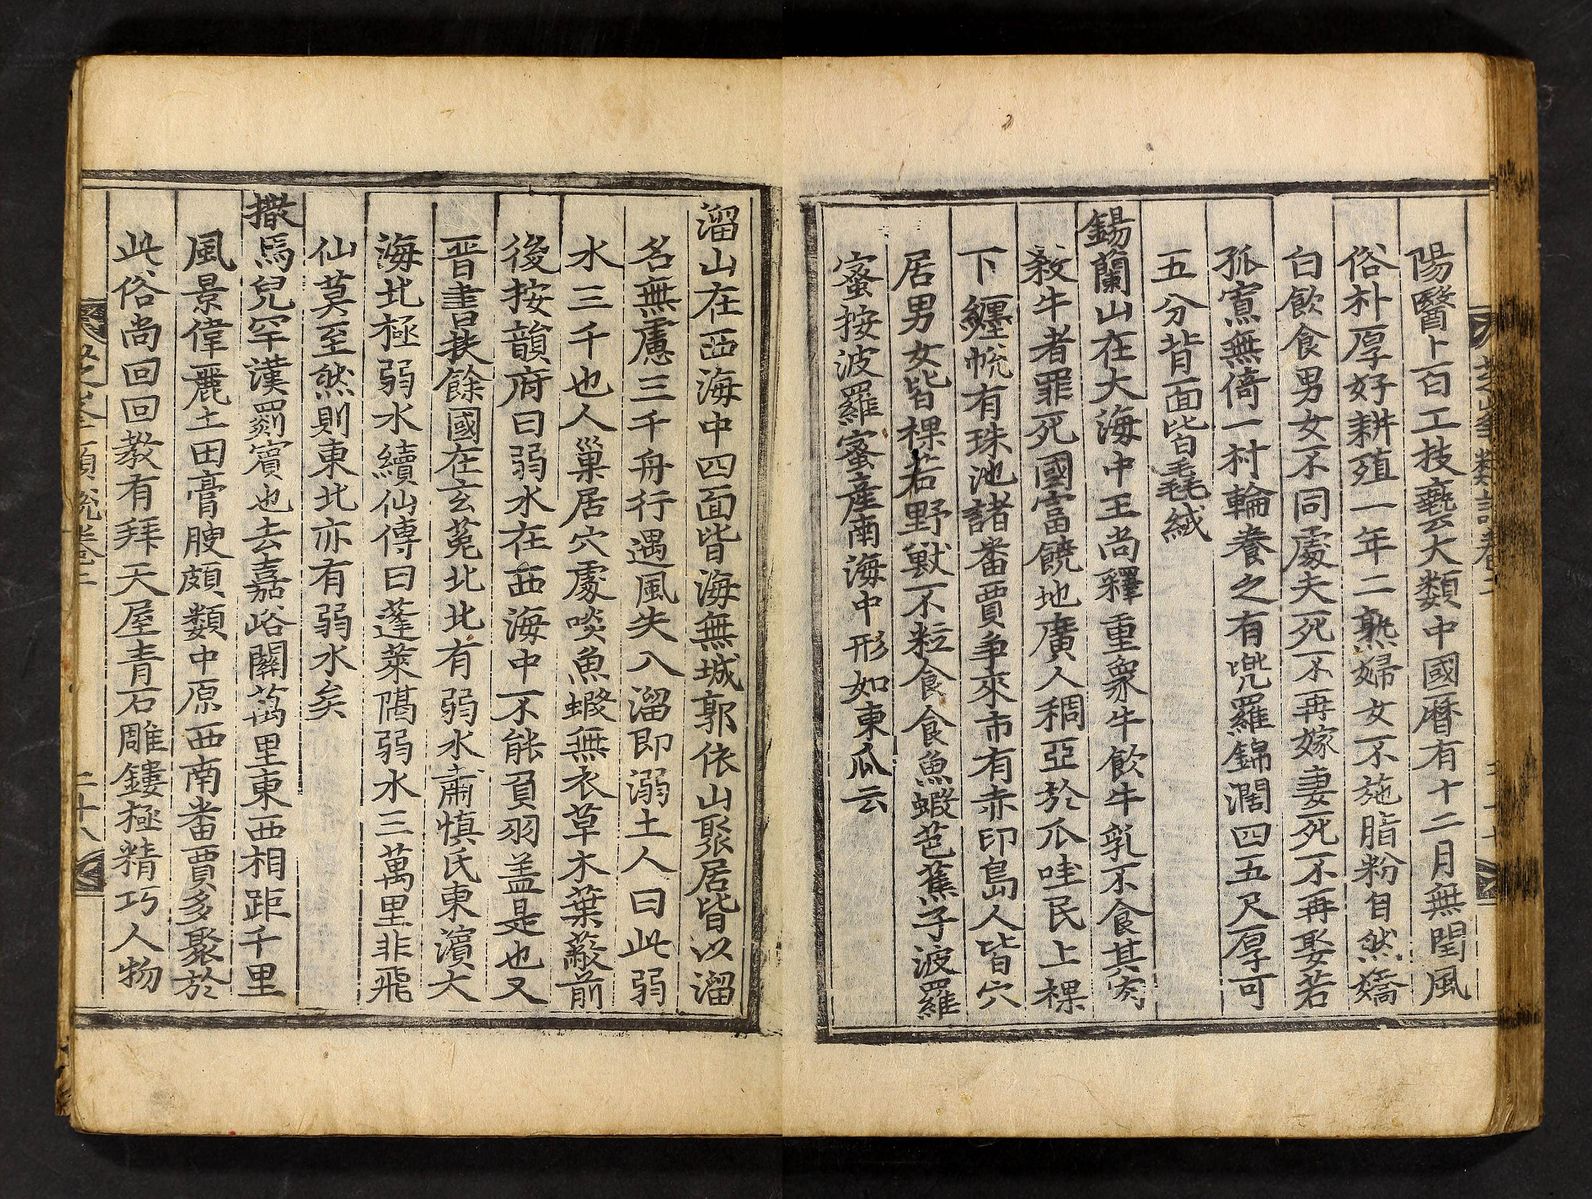 陽醫卜百工技藝大類中國曆有十二月無閏風
俗朴厚好耕殖一年二熟婦女不施脂粉自然嬌
白飮食男女不同處夫死不再嫁妻死不再娶若
孤寡無倚一村輪養之有兜羅錦濶四五尺厚可
五分背面皆毳絨
錫蘭山在大海中王尚釋重象牛飮牛乳不食其肉
殺牛者罪死國富饒地廣人稠亞於瓜哇民上裸
下纏帨有珠池諸番賈爭來市有赤印島人皆穴
居男女皆裸若野獸不粒食食魚蝦芭蕉子波羅
蜜按波羅蜜産南海中形如東瓜云
溜山在西海中四面皆海無城郭依山聚居皆以溜
名無慮三千舟行遇風失入溜即溺土人曰此弱
水三千也人巢居穴處啖魚蝦無衣草木葉蔽前
後按韻府曰弱水在西海中不能負羽盖是也又
晋書扶餘國在玄菟北北有弱水肅愼氏東濱大
海北極弱水續仙傳曰蓬萊隔弱水三萬里非飛
仙莫至然則東北亦有弱水矣
撒馬兒罕漢罽賓也去嘉峪關萬里東西相距千里
風景偉麗土田膏腴頗類中原西南番賈多聚於
此俗尚回回教有拜天屋青石雕鏤極精巧人物
芝峯類說卷二
二十八